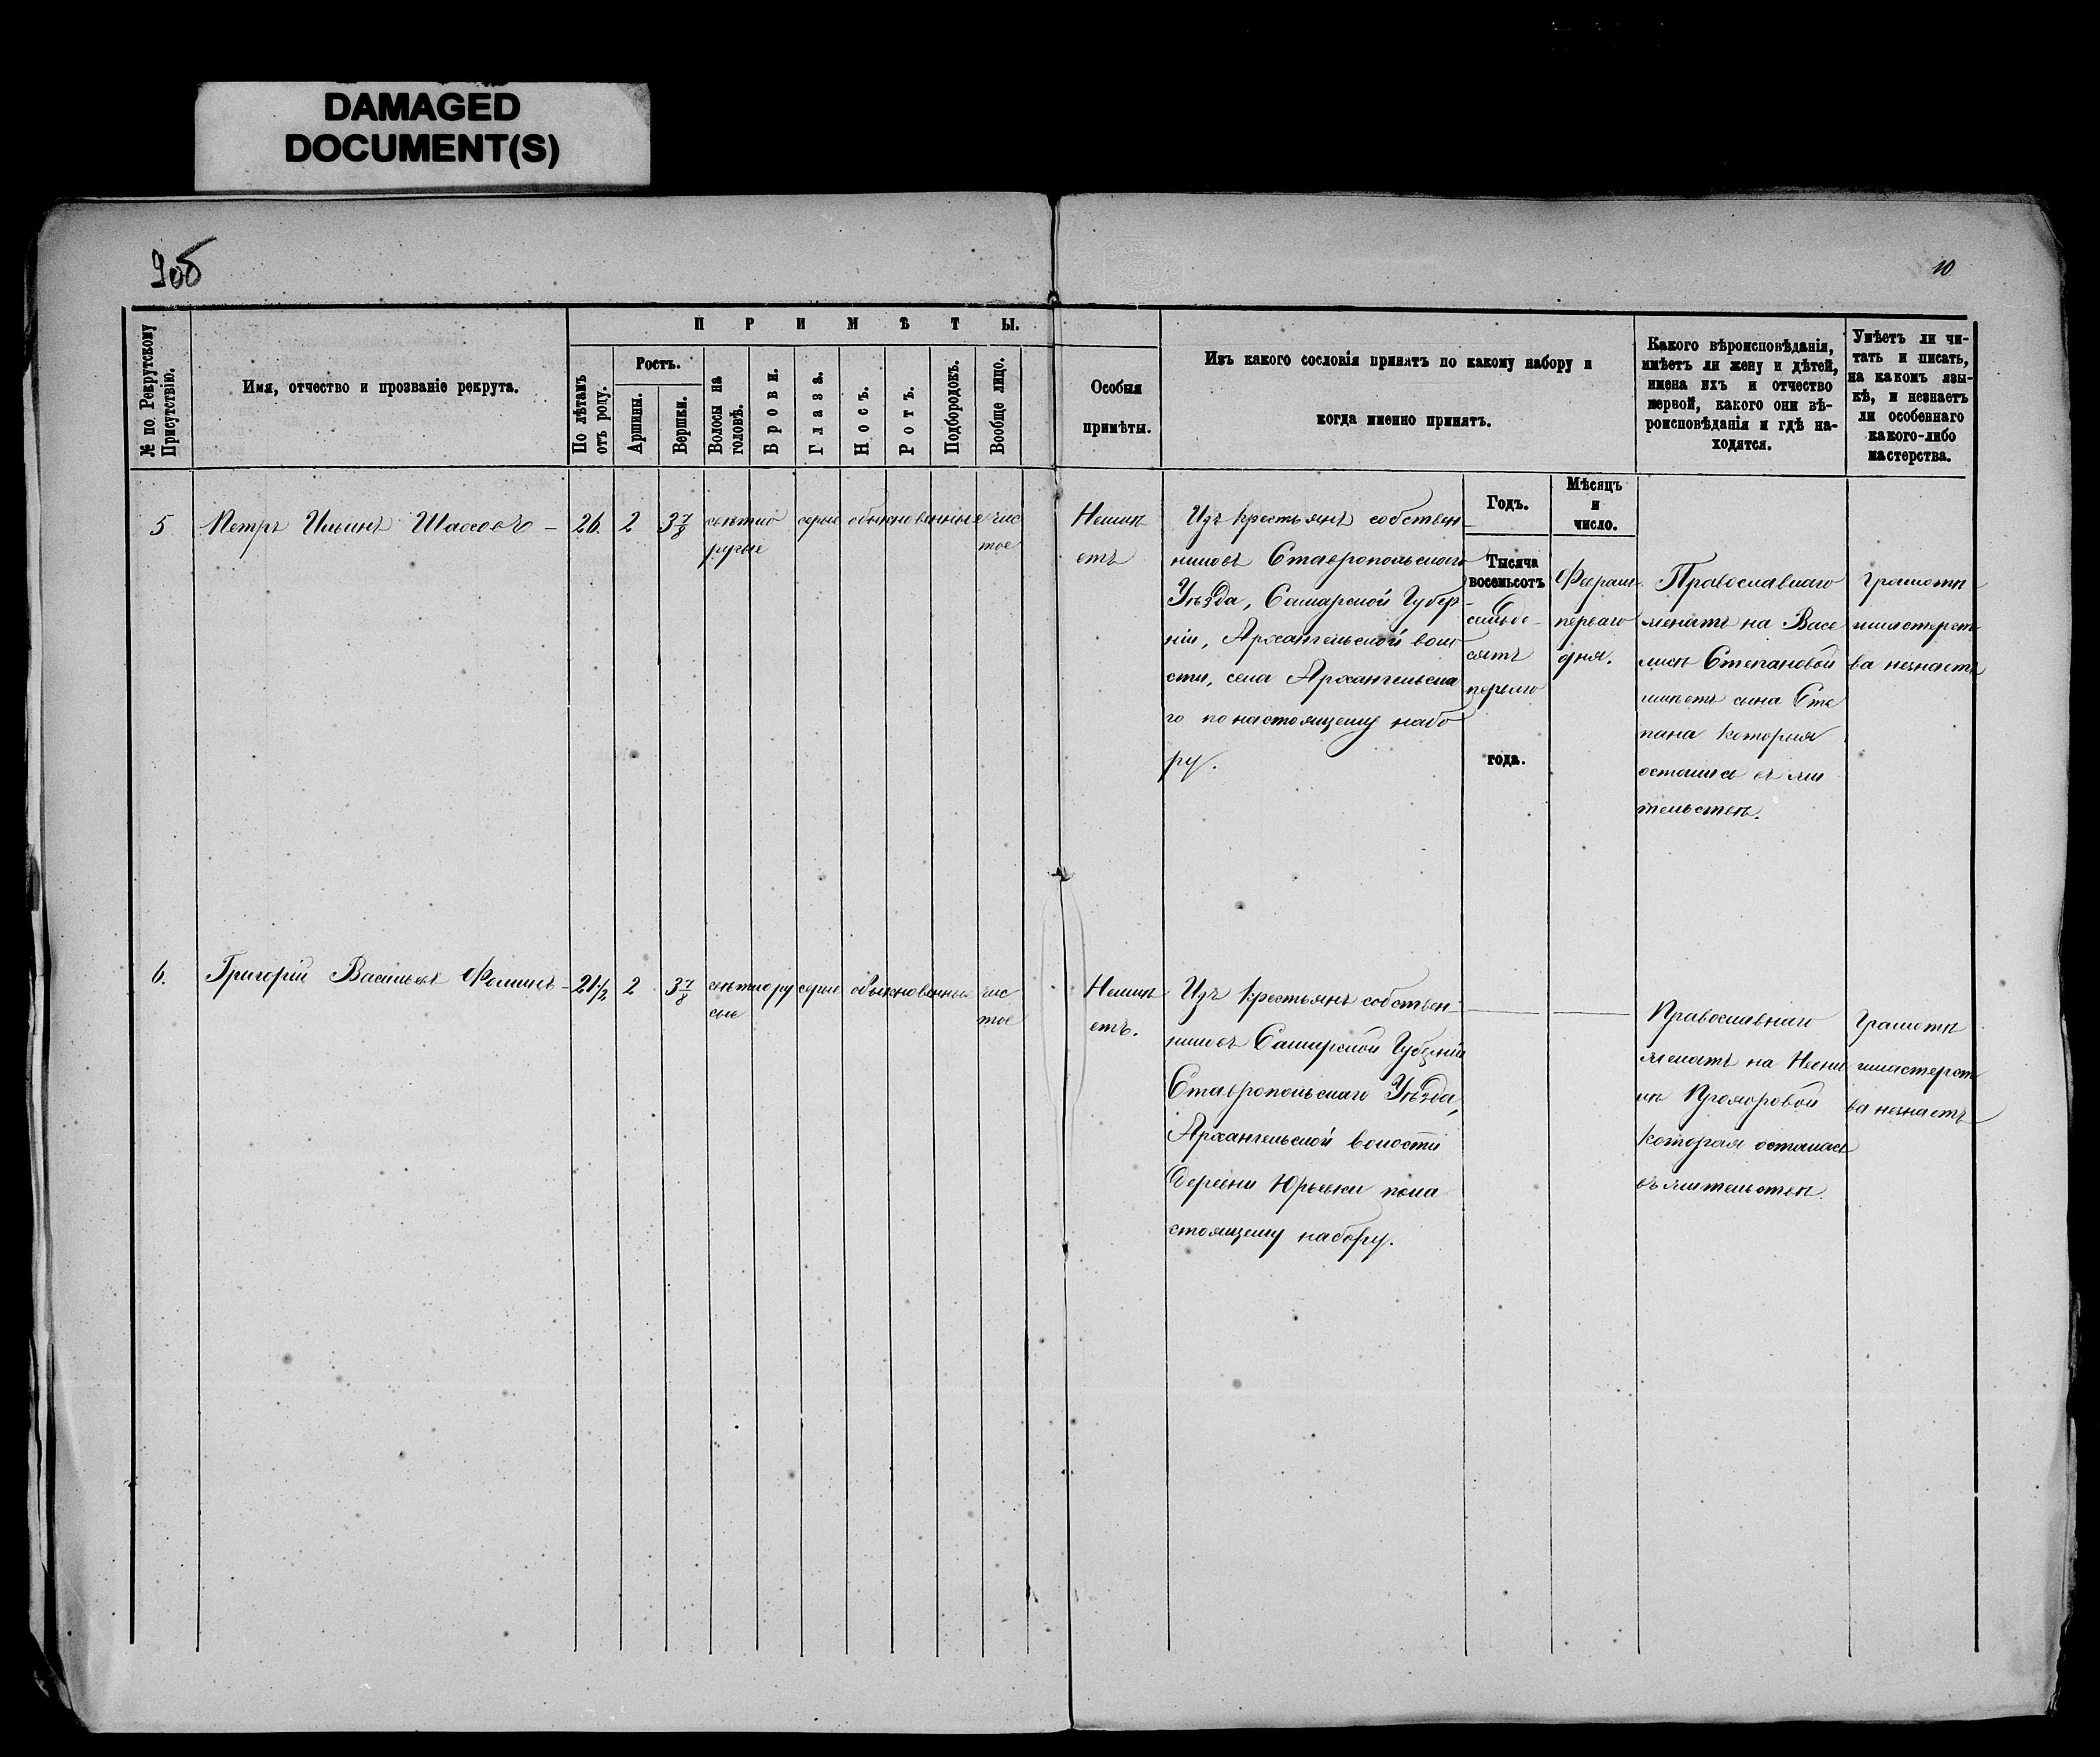 DAMAGED
DOCUMENT(S)
9об
10
№ по Рекрутскому
Присутствію.
Имя, отчество и прозваніе рекрута.
ПРИМѢТЫ.
По лѣтамъ
отъ роду.
Ростъ.
Аршины.
Вершки.
Волосы на
головѣ.
Брови.
Глаза.
Носъ.
Ротъ.
Подбородокъ.
Вообще лицо.
Особыя
примѣты.
Изъ какого сословія принятъ по какому набору и
когда именно принятъ.
Какого вѣроисповѣданія,
имѣетъ ли жену и дѣтей,
имена ихъ и отчество
первой, какого они вѣ-
роисповѣданія и гдѣ на-
ходятся.
Умѣетъ ли чи-
тать и писать,
на какомъ язы-
кѣ, и незнаетъ
ли особеннаго
какого-либо
мастерства.
5
Петръ Ильинъ —
26.
2
3 7/8
свѣтло
русые
серые
обыкновенные
чис
тое
Неимѣ
етъ
Изъ крестьянъ собствен-
никовъ Ставропольскаго
Уѣзда, Самарской Губер-
ніи, Архангельской воло
сти, села Архангельска
го по настоящему набо
ру.
Годъ.
Тысяча
восемьсотъ
семьде-
сятъ
первого
года.
Мѣсяцъ
и
число.
Февраля
перваго
дня.
Православнаго
женатъ на Васе
лисѣ Степановой
имѣетъ сына Сте
пана которыя
остались въ жи
тельствѣ.
Грамотѣ
имастерст
ва незнаетъ
6.
Григорій Васильевъ Фоминъ -
21 1/2
2
3 7/8
свѣтлору
сые
серые
обыкновенные
чис
тое
Неимѣ
етъ.
Изъ крестьянъ собствен-
никовъ Самарской Губерніи
Ставропольскаго Уѣзда,
Архангельской волости
деревни Юрьевки пона
стоящему набору.
Православнаго
женатъ на
Прохоровой
которая осталась
въ жительствѣ.
Грамотѣ
имастерст
ва незнаетъ